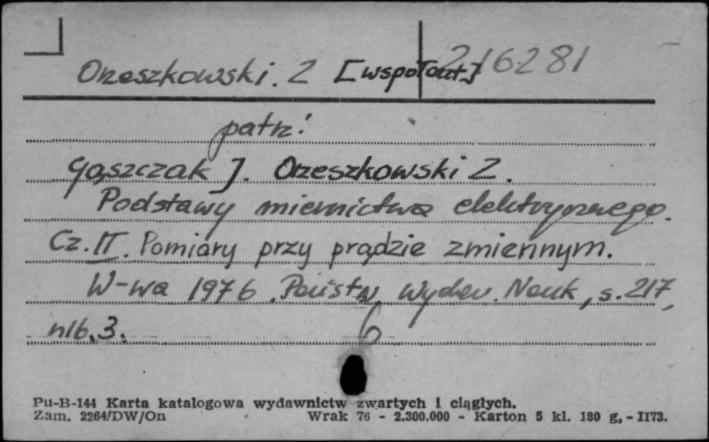 Orzeszkowski. Z [współaut.] 216281
patrz:
Gąszczak J. Orzeszkowski Z.
Podstawy miernictwa elektrycznego.
Cz. II. Pomiary przy prądzie zmiennym.
W-wa 1976. Państw. Wydaw. Nauk, s. 217,
nlb. 3.
Pu-B-144 Karta katalogowa wydawnictw zwartych i ciągłych.
Zam. 2264/DW/On Wrak 76 - 2.300.000 - Karton 5 kl. 180 g, - II73.